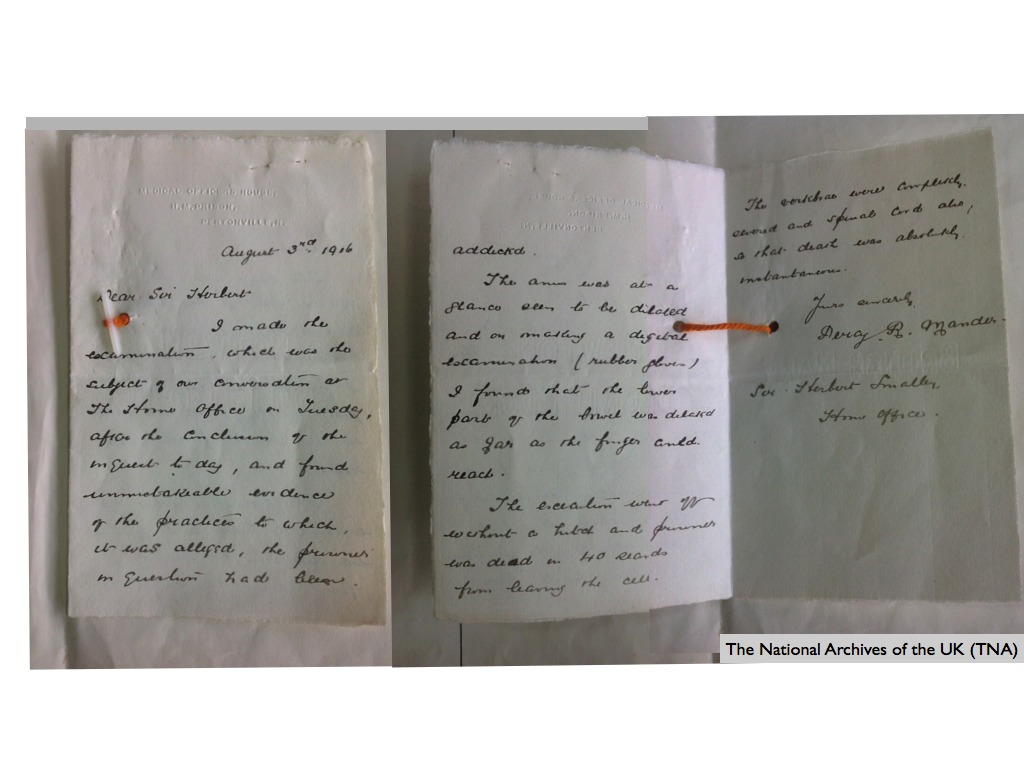 MEDICAL OFFICER'S HOUSE,
H.M. PRISON,
PENTONVILLE, N.
August 3rd 1916
Dear Sir Herbert
I made the
examination, which was the
subject of our conversation at
The Home Office on Tuesday,
after the conclusion of the
inquest to day, and found
unmistakeable evidence
of the practices to which,
it was alleged, the prisoner
in question had been.
addicted.
The anus was at a
glance seen to be dilated
and on making a digital
examination (rubber gloves)
I found that the lower
part of the bowel was dilated
as far as the finger could
reach.
The execution went off
without a hitch and prisoner
was dead in 40 seconds
from leaving the cell.
The vertebrae were completely
severed and spinal cord also,
so that death was absolutely
instantaneous.
Yours sincerely
Percy R. Mander.
Sir Herbert Smalley,
Home Office.
The National Archives of the UK (TNA)